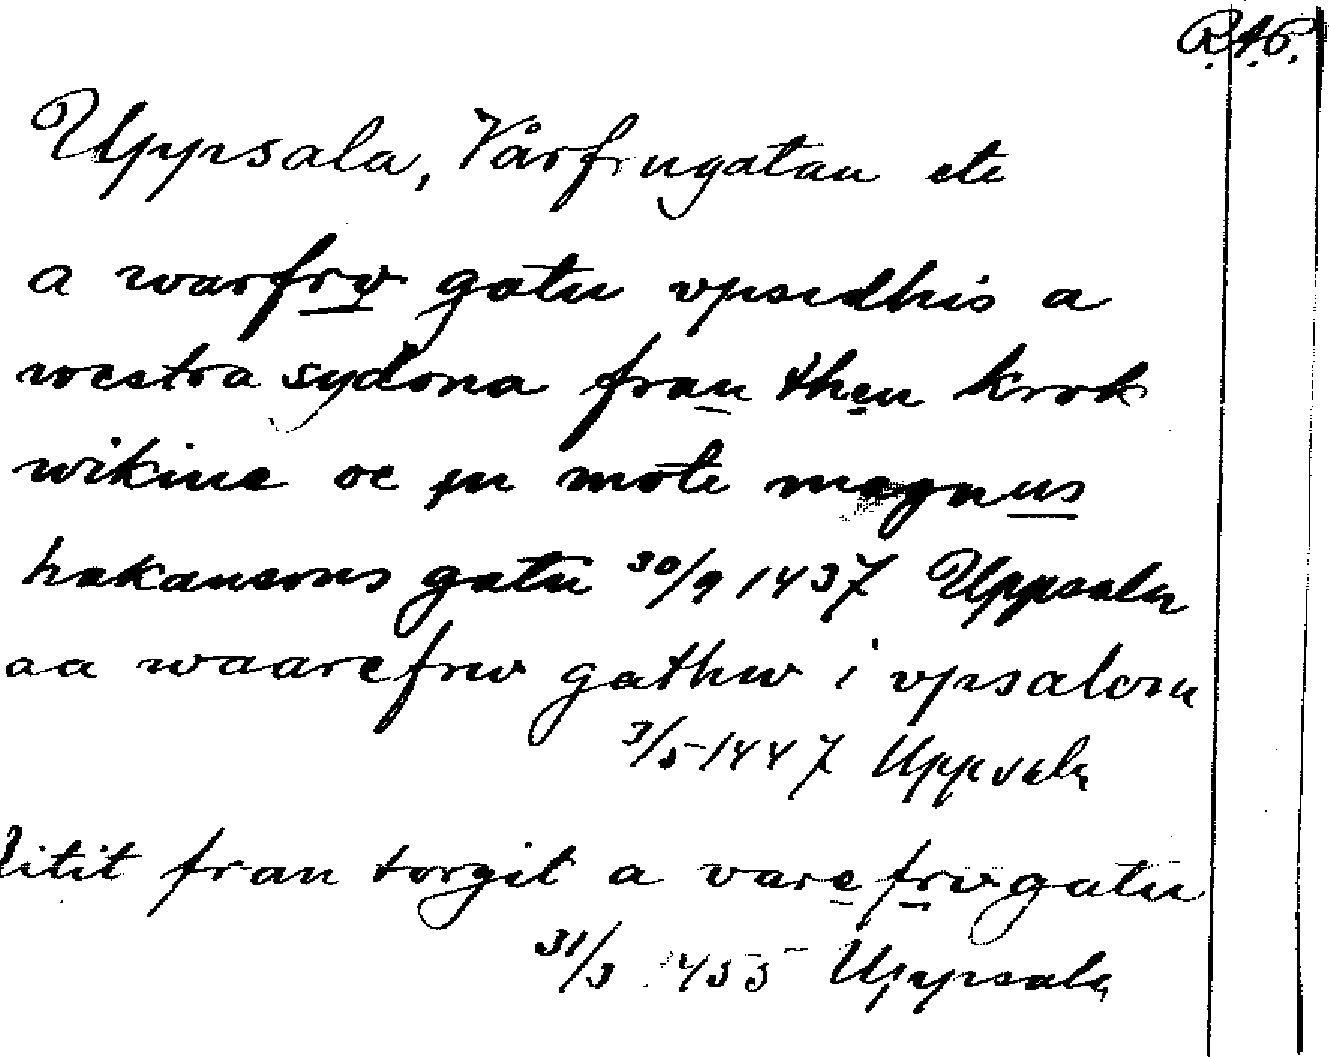 R.A.P.
Uppsala, Vårfrugatan etc
a warfrv gatu vpsidhis a
westra sydona fran then krok
wikine oc in mote magnus
hakansons gatu 30/9 1437 Uppsala
aa waarefrw gathw i vpsalom
3/5 1447 Uppsala
litit fran torgit a vare frv gatu
31/3 1455 Uppsala